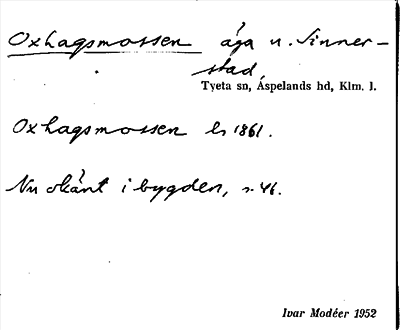 Oxhagsmossen äga u. Sinner-
stad
Tveta sn, Aspelands hd, Klm. l.
Oxhagsmossen ls 1861.
Nu okänt i bygden, s. 46.
Ivar Modéer 1952